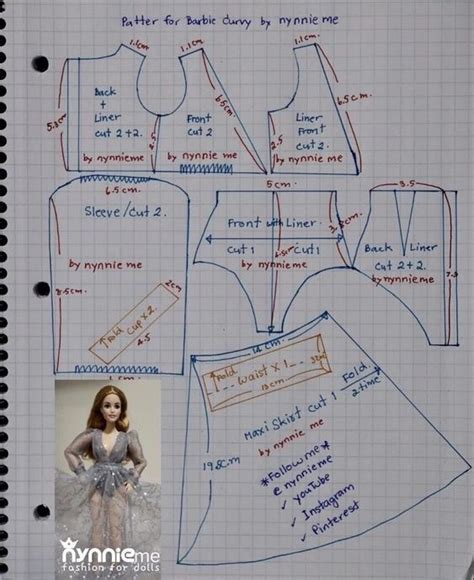 Patter for Barbie Curvy by nynnie me
1.1cm
1.1cm
1.1cm
Back
+
Liner
cut 2+2.
by nynnieme
Front
cut 2
by nynnie me
6.5cm
Liner
Front
cut 2.
by nynnie me
2.5
6.5cm.
6.5cm.
Sleeve/cut 2.
by nynnie me
8.5cm
↑Fold cup x 2.
2cm
4.5
5cm
Front with Liner.
cut 1
cut 1
by nynnieme
3.5
Back
Liner
cut 2+2.
by nynnieme
14 cm.
↑Fold
1-- waist x 1---
13cm
Fold
2-time
Maxi Skirt cut 1
by nynnie me
19.5cm
*Follow me*
@nynnieme
✓ YouTube
✓ Instagram
✓ Pinterest
nynnieme
fashion for dolls